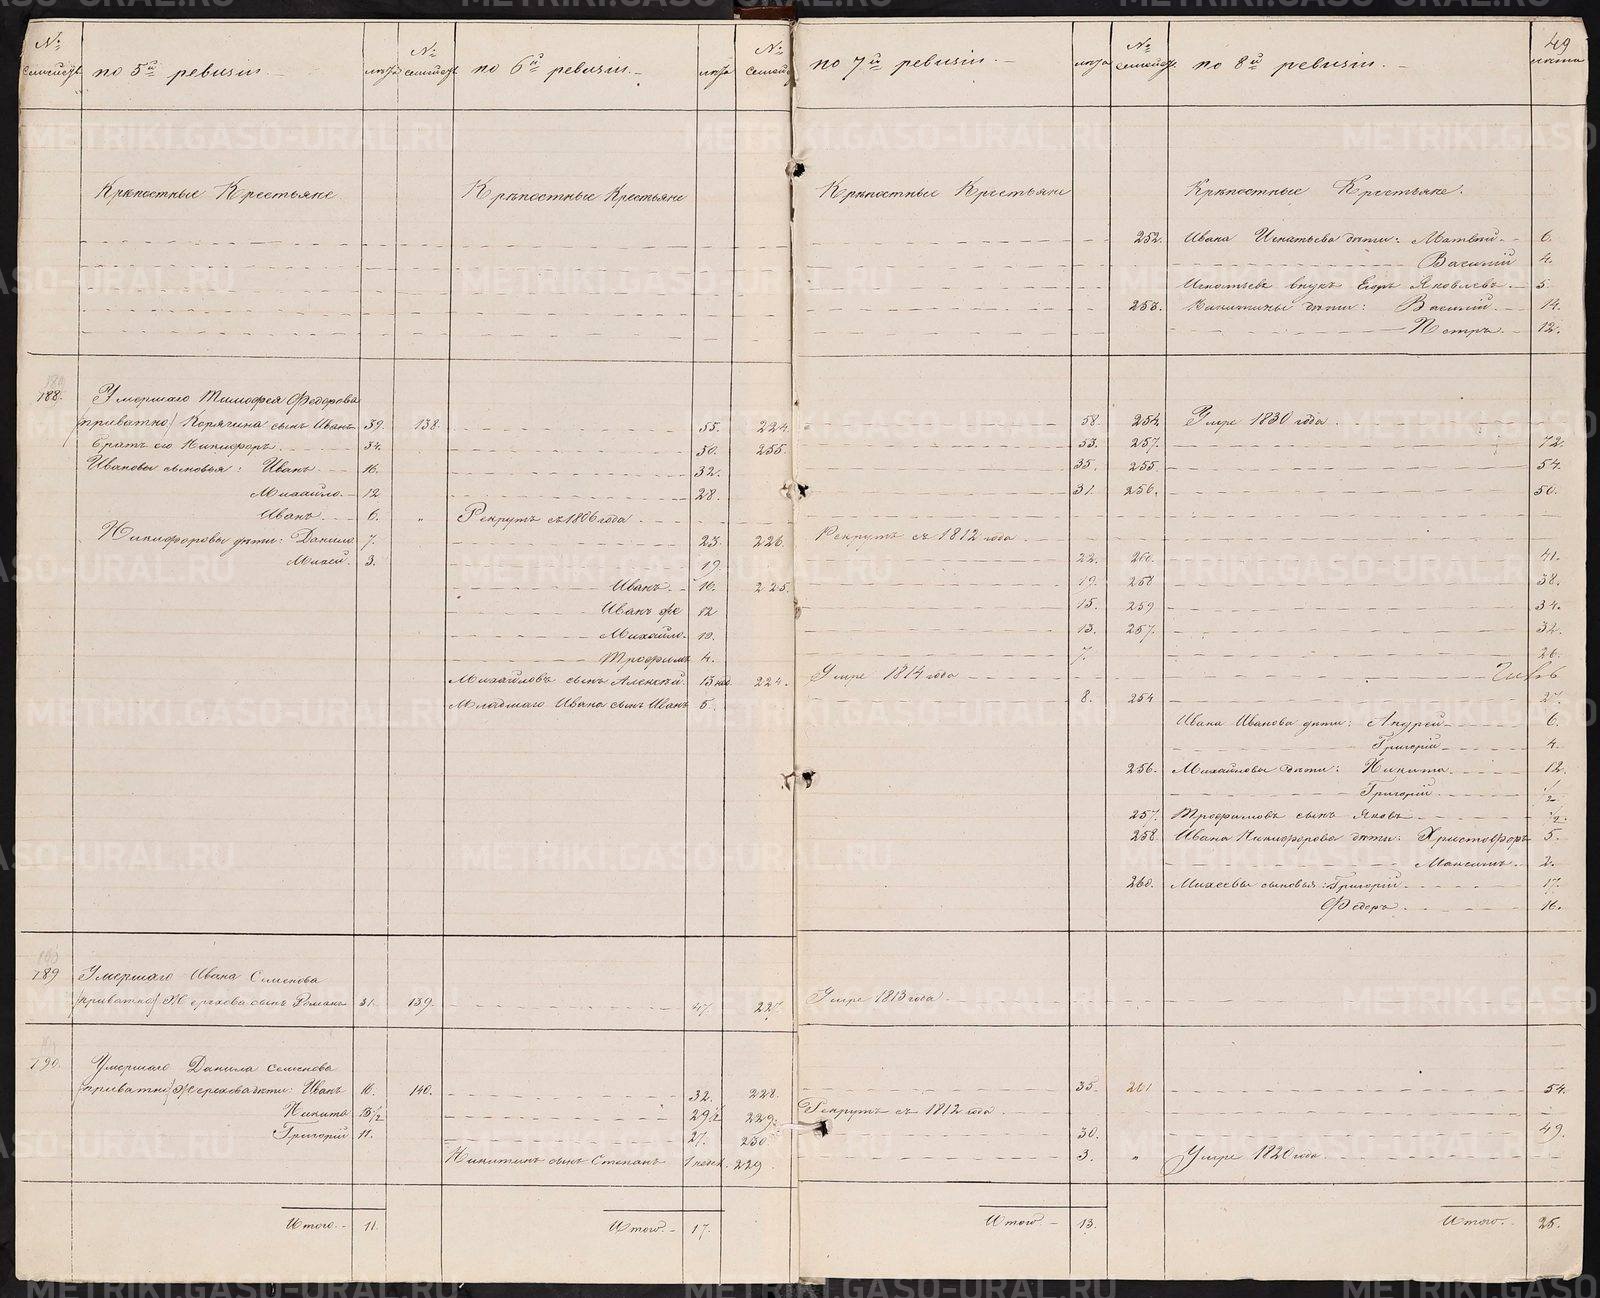 № семействъ по 5й ревизіи. лѣта № семействъ по 6й ревизіи. лѣта № семейств по 7й ревизіи. лѣта № семейст по 8й ревизіи. 49 лѣта
Крѣпостные Крестьяне Крѣпостные Крестьяне Крѣпостные Крестьяне Крѣпостные Крестьяне.
252. Ивана Игнатьева дѣти: Матвѣй 6.
Василій 4.
Игнатьевъ внукъ Егоръ Яковлевъ 5.
253. дѣти: Василій 14.
Петръ 12.
188. Умершаго Тимофея Федорова
(приватно) Корягина сынъ Иванъ 39. 138. 55. 224. 58. 254. Умре 1830 года
Братъ его Никифоръ 34. 50. 255. 53. 257. 72.
Ивановы сыновья: Иванъ 16. 32. 35. 255. 54.
Михайло 12 28. 31. 256. 50.
Иванъ 6. „ Рекрутъ съ 1806 года
Никифоровы дѣти: Данило 7. 23. 226. Рекрутъ съ 1812 года
Михей 3. 19. 22. 260. 41.
Иванъ 16. 225. 19. 258 38.
Иванъ же 12 15. 259 34.
Михайло 10. 13. 257. 32.
Трофимъ 4. 7. 26.
Михайловъ сынъ Алексѣй 13 нед. 224. Умре 1814 года
Младшаго Ивана сынъ Иванъ 5. 8. 254 27.
Ивана Иванова дѣти: Андрей 6.
Григорій 4.
256. Михайловы дѣти: Никита 12.
Григорій 1/2
257. Трофимовъ сынъ Яковъ 1/2.
258. Ивана Никифорова дѣти: Христофоръ 5.
Максимъ 2.
260. Михеевы сыновья: Григорій 17.
Федоръ 16.
189 Умершаго Ивана Семенова
(приватно) Жерехова сынъ Романъ 31. 139. 47. 227. Умре 1813 года
190. Умершаго Данила Семенова
(приватно) Жерехова дѣти: Иванъ 16. 140. 32. 228. 35. 261 54.
Никита 13 1/2 29 1/2 229. Рекрутъ съ 1812 года
Григорій 11. 27. 230. 30. 49.
Никитинъ сынъ Степанъ 229 3. „ Умре 1820 года
Итого 11. Итого 17. Итого 13. Итого 25.
METRIKI.GASO-URAL.RU